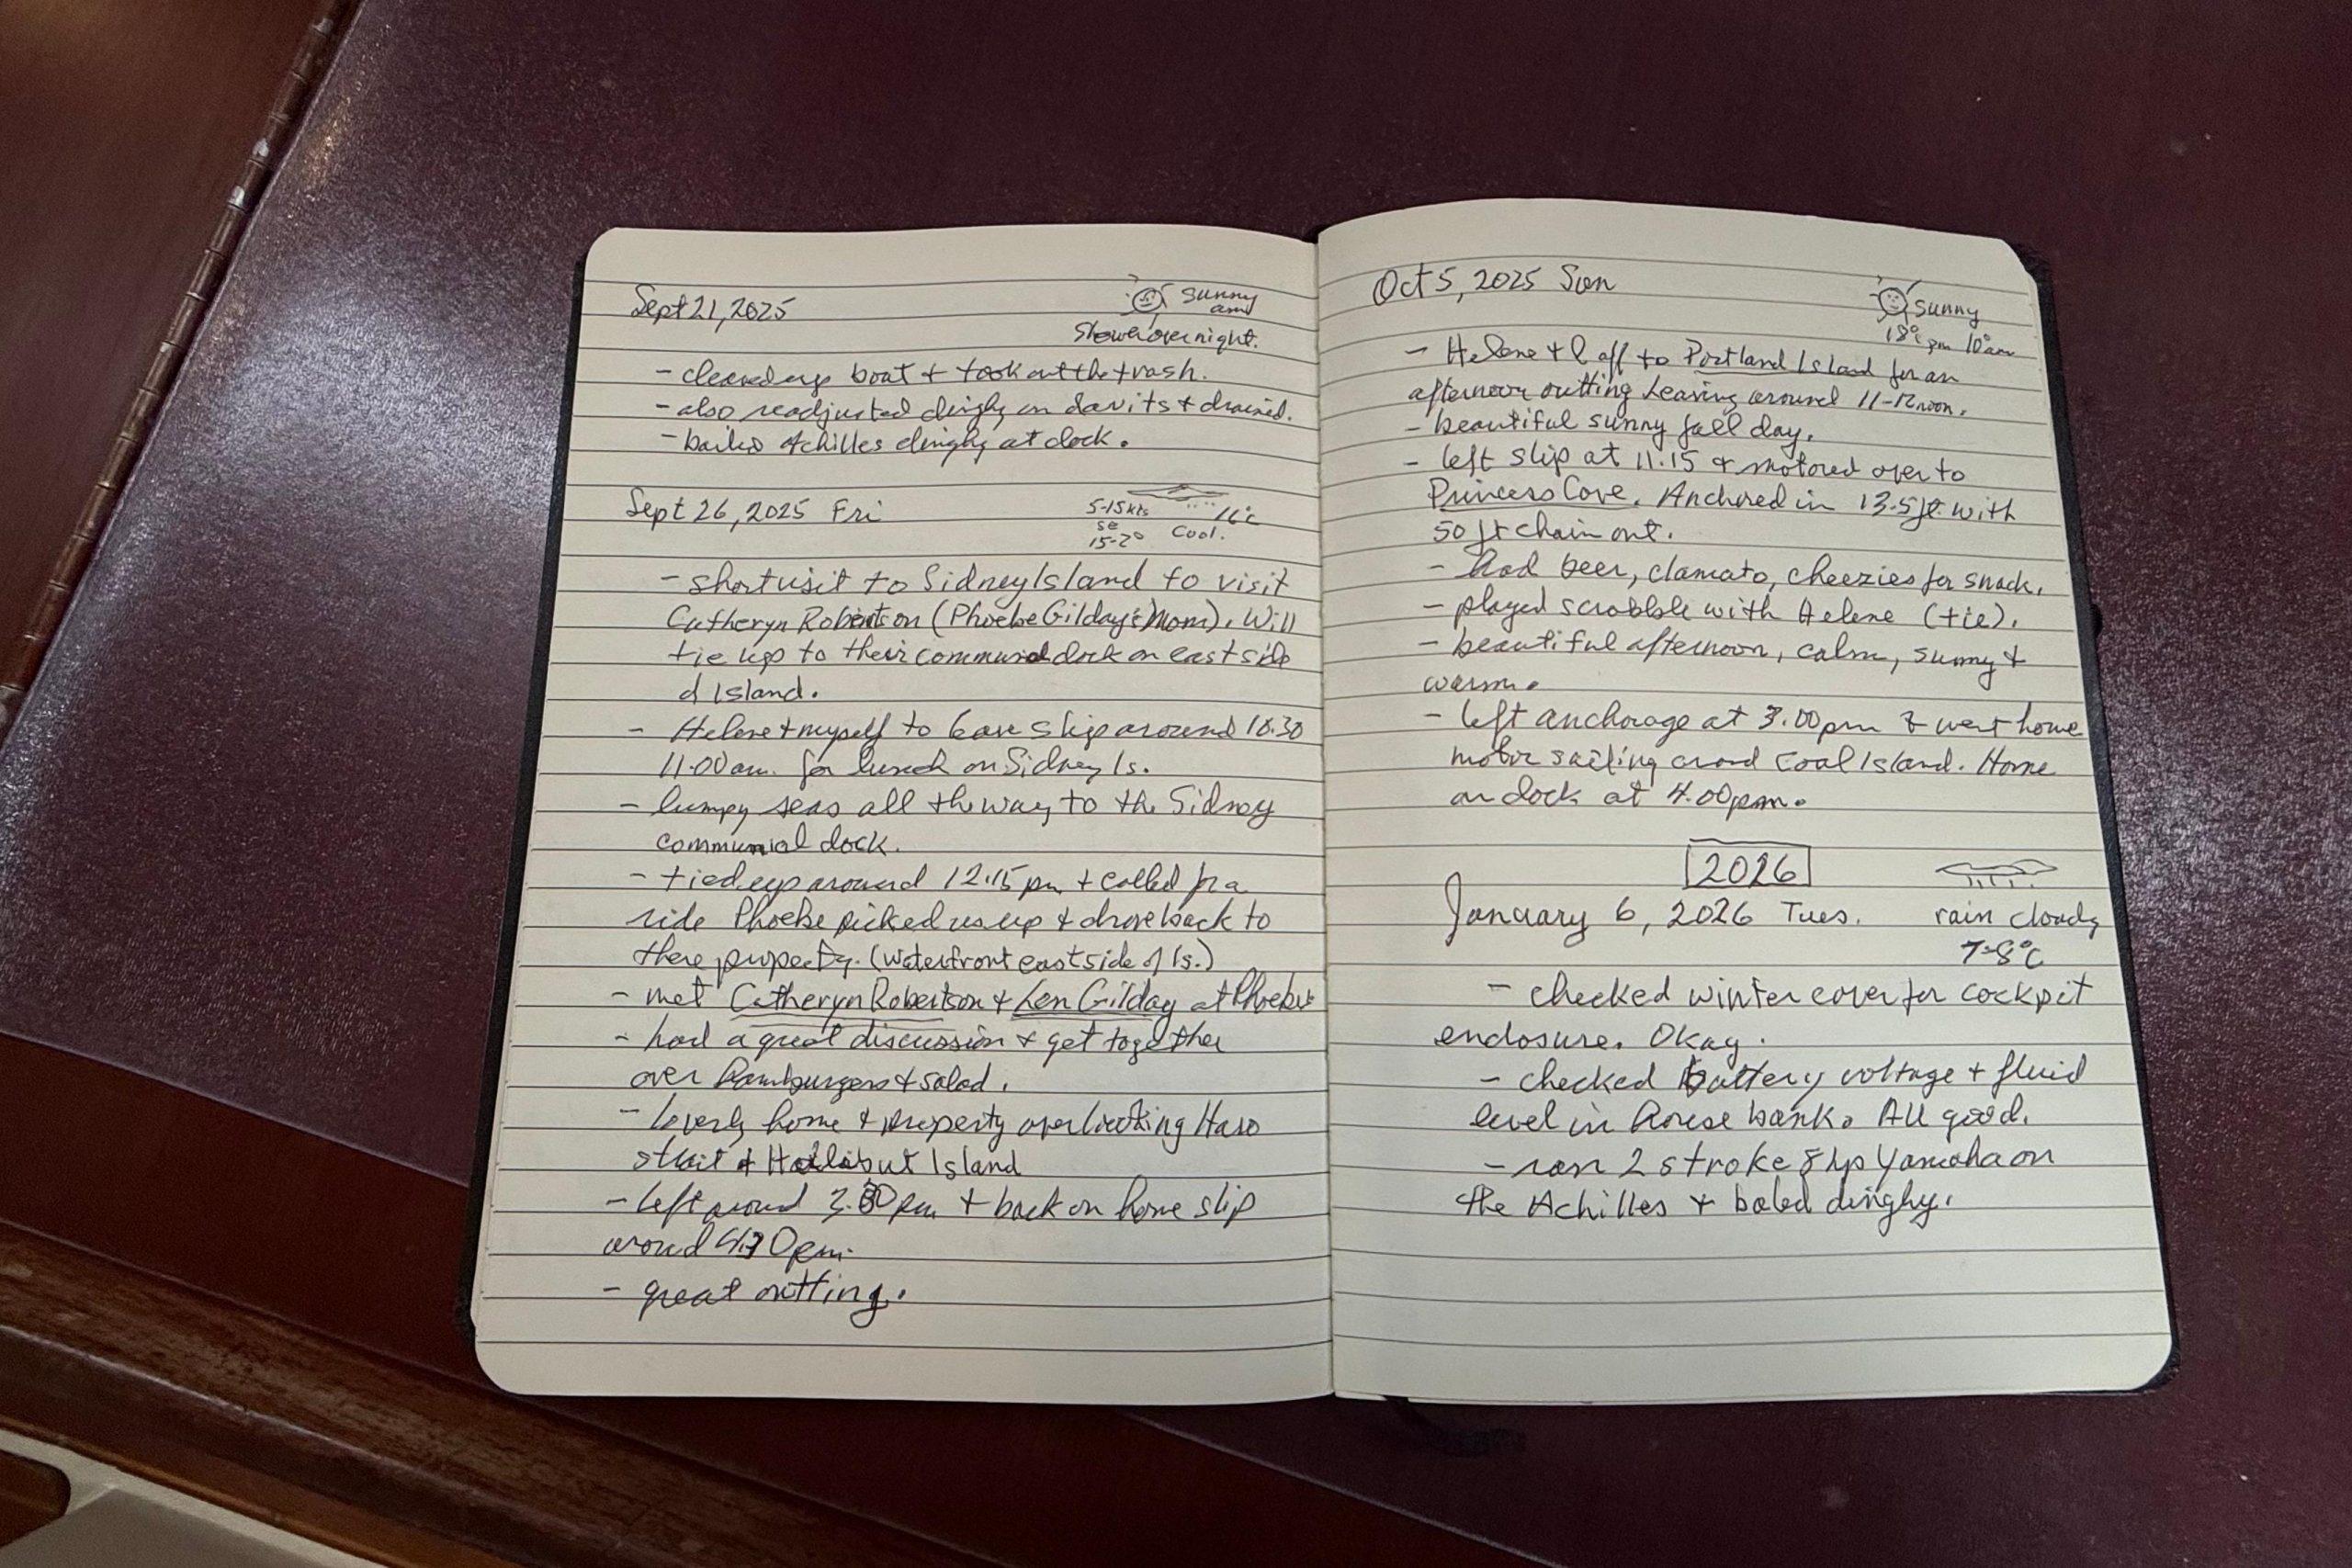 Sept 21, 2025
sunny
am
Shower overnight.
- cleaned up boat + took out the trash.
- also readjusted dinghy on davits + drained.
- bailed Achilles dinghy at dock.
Sept 26, 2025 Fri
5-15 kts 16°c
se Cool.
- short visit to Sidney Island to visit
Catheryn Robertson (Phoebe Gilday's Mom). Will
tie up to their communal dock on east side
of Island.
- Helene + myself to leave slip around 10.30
11.00 am. for lunch on Sidney Is.
- lumpy seas all the way to the Sidney
communial dock.
- tied up around 12.15 pm + called for a
ride Phoebe picked us up + drove back to
there property. (waterfront east side of Is.)
- met Catheryn Robertson + Len Gilday at Phoebe's
- had a great discussion + get together
over hamburgers + salad.
- lovely home + property overlooking Haro
strait + Halibut Island
- left around pm + back on home slip
around pm.
- great outting.
Oct 5, 2025 Sun
sunny
18°c pm 10° am
- Helene + I off to Portland Island for an
afternoon outting Leaving around 11-12 noon.
- beautiful sunny fall day.
- left slip at 11.15 + motored over to
Princess Cove. Anchored in 13.5 ft. with
50 ft chain out.
- had beer, clamato, cheezies for snack.
- played scrabble with Helene (tie).
- beautiful afternoon, calm, sunny +
warm.
- left anchorage at 3.00 pm & went home
motor sailing around Coal Island. Home
on dock at 4.00 pm.
2026
January 6, 2026 Tues. rain cloudy
7-8°C
- checked winter cover for cockpit
enclosure. Okay.
- checked battery voltage + fluid
level in house bank. All good.
- ran 2 stroke 8 hp Yamaha on
the Achilles + baled dinghy.